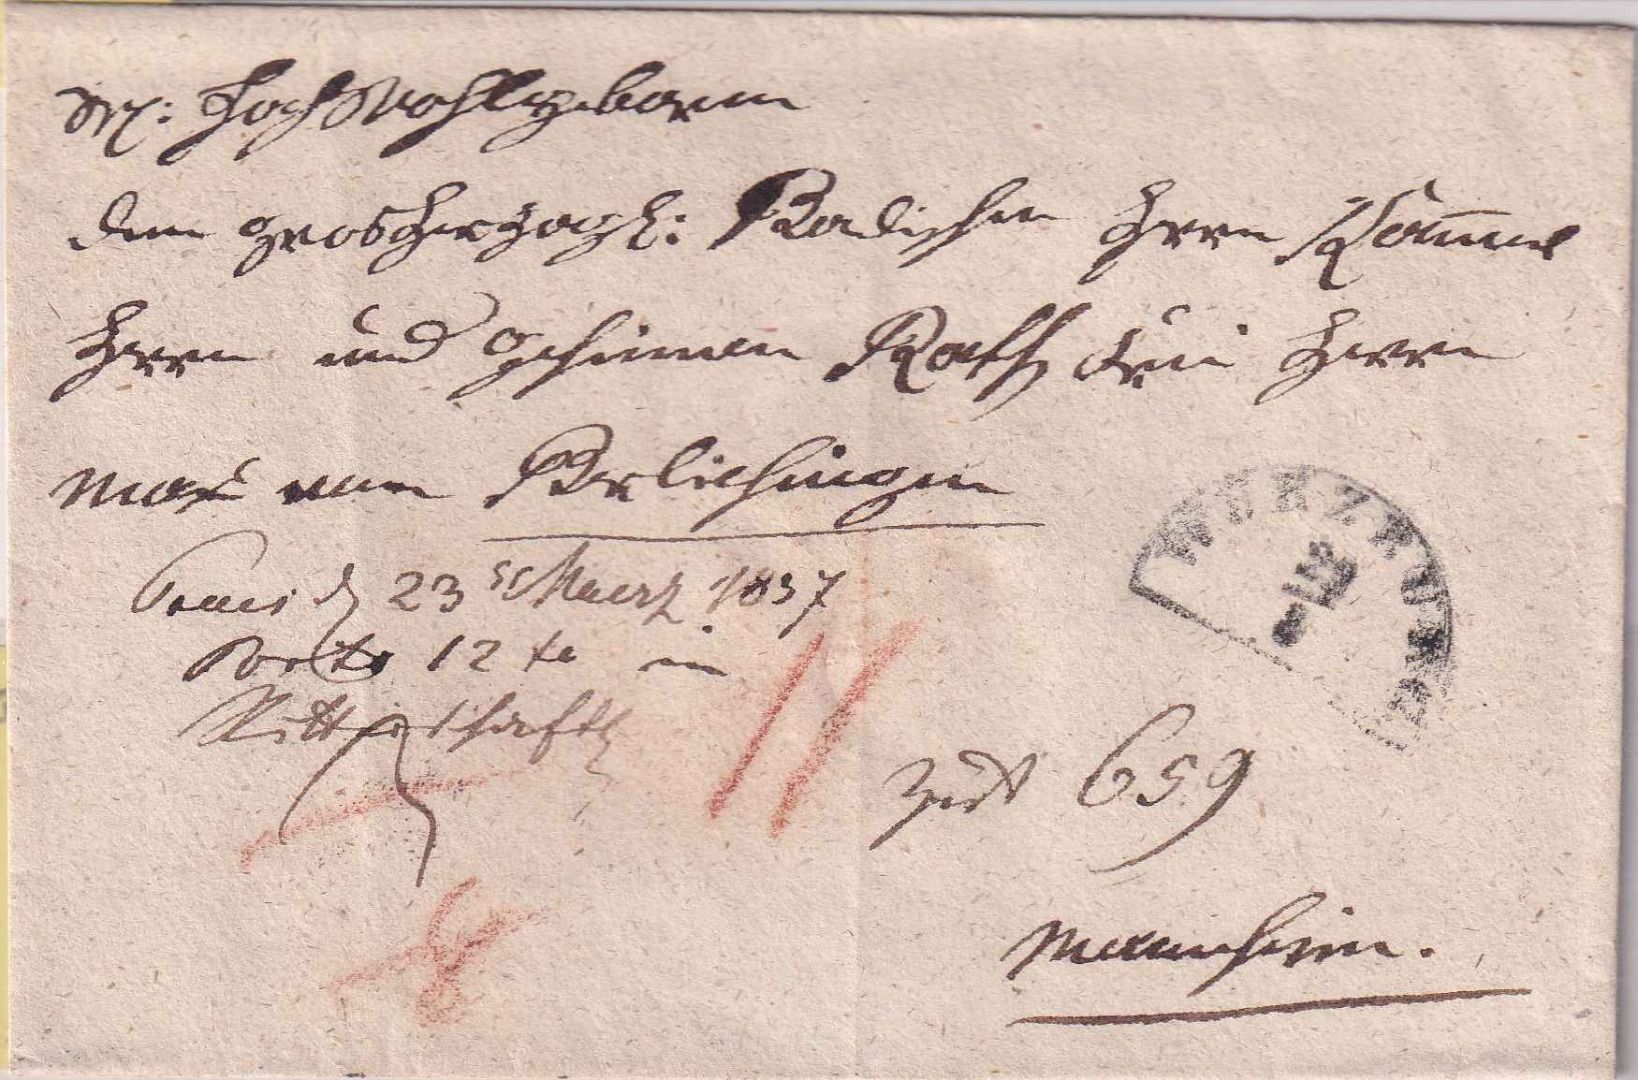 Sr: Hochwohlgeboren
dem grosherzogl: Badischen Herrn Kam̄er
Herrn und geheimen Rath Frei Herrn
Max von Berlichingen
WÜRZBURG
d 23 Maerz 1837
Porto 12 xr in
Ritterschaftl
11
659
8
Mannheim.